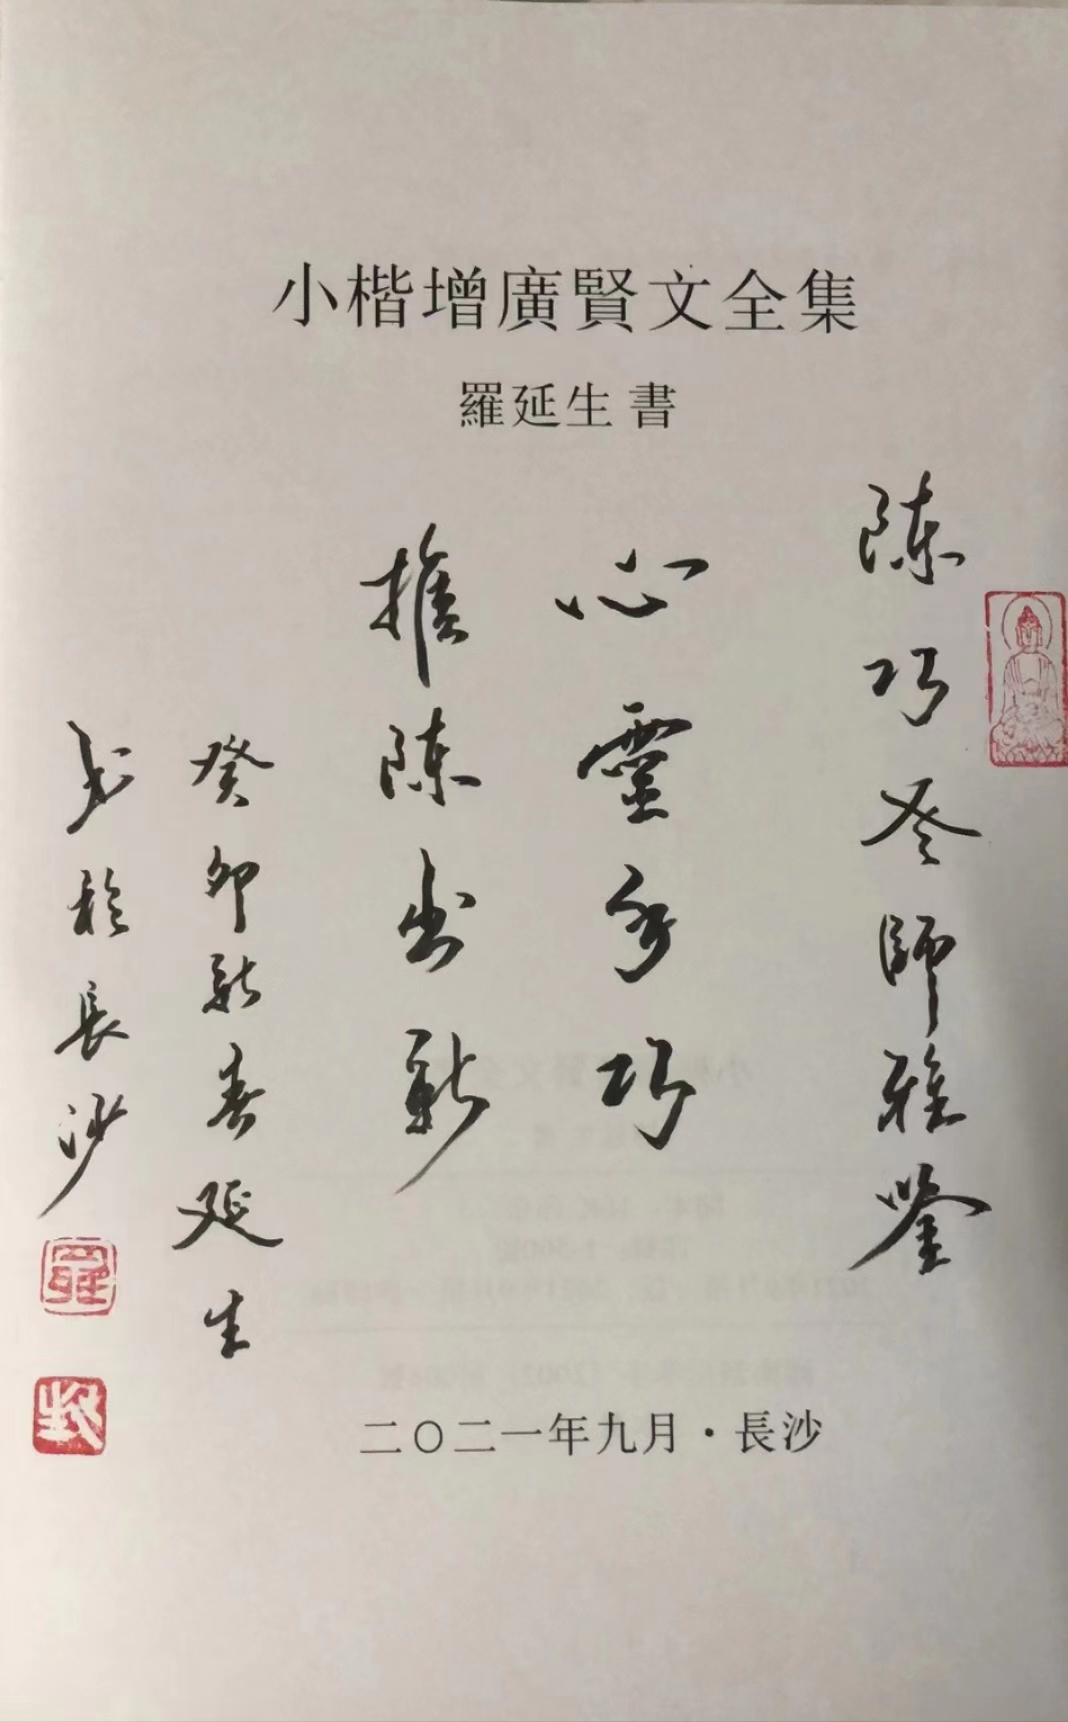 小楷增廣賢文全集
羅延生 書
陳巧冬師雅鑒
心靈手巧
推陳出新
癸卯新春延生
書於長沙
二〇二一年九月·長沙